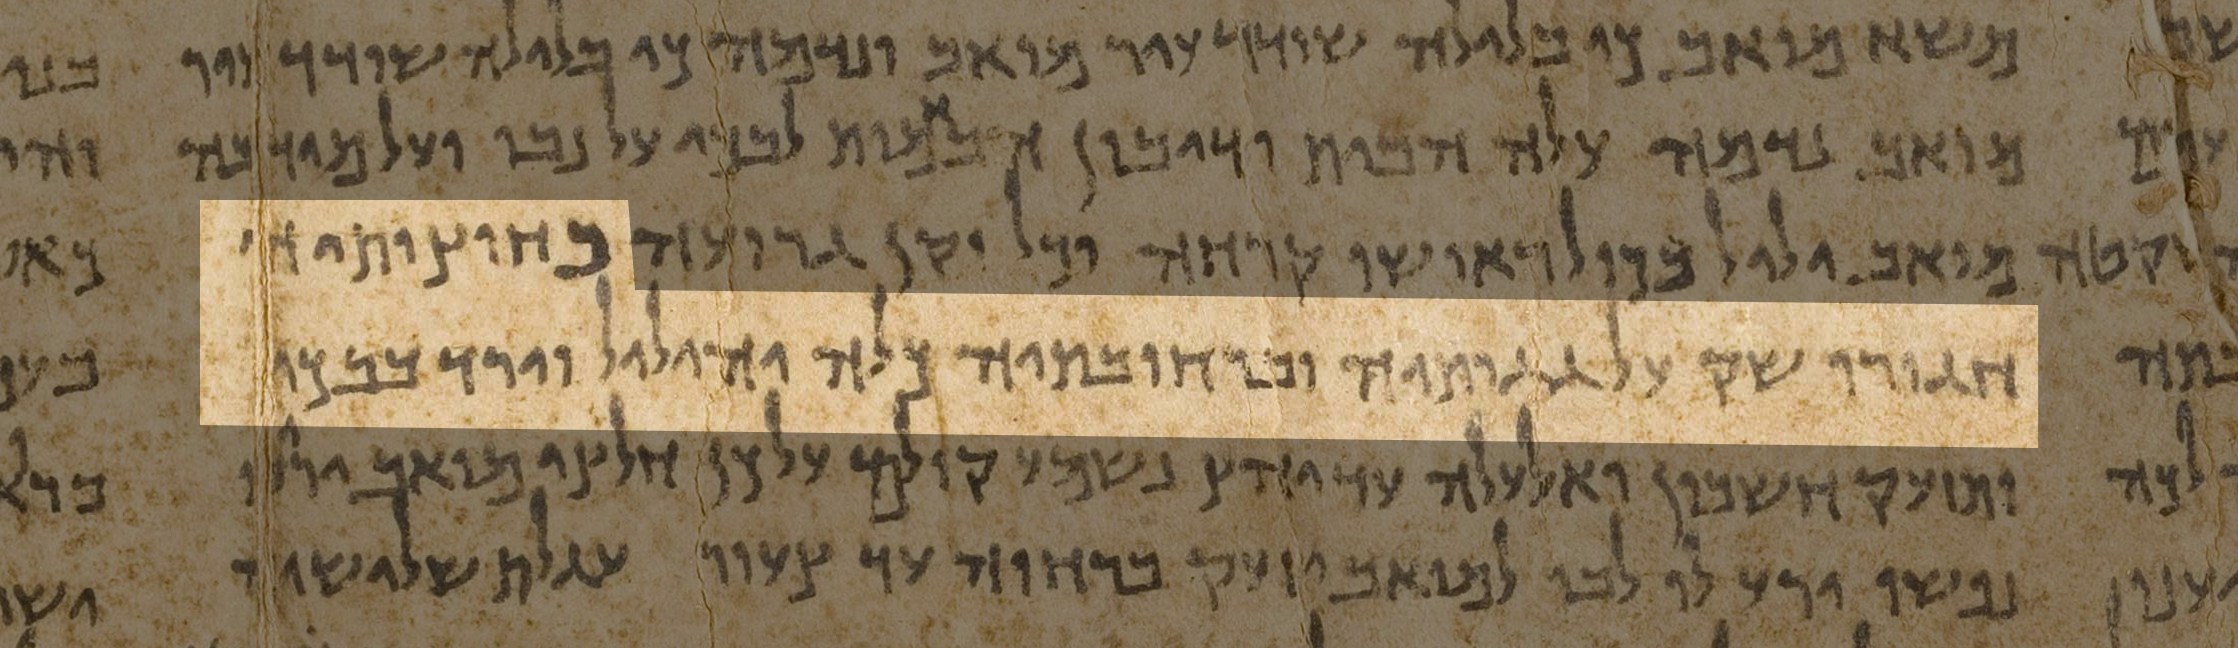 משא מואב כי בלילה שודד עיר מואב ונדמה כי בלילה שודד עיר
מואב נדמה עלה הבית ודיבון הבאמות לבכי על נבו ועל מידבה
מואב יליל בכול ראושו קרחה וכל זקן גרועה בחוצותיה
חגורו שק על גגותיה וברחובתיה כלה יהיליל וירד בבכי
ותזעק חשבון ואלעלה עד יהץ נשמע קולם על כן חלצי מואב יריעו
נפשו ירע לו לבו למואב יזעק ברחוה עד צעור עגלת שלישיה